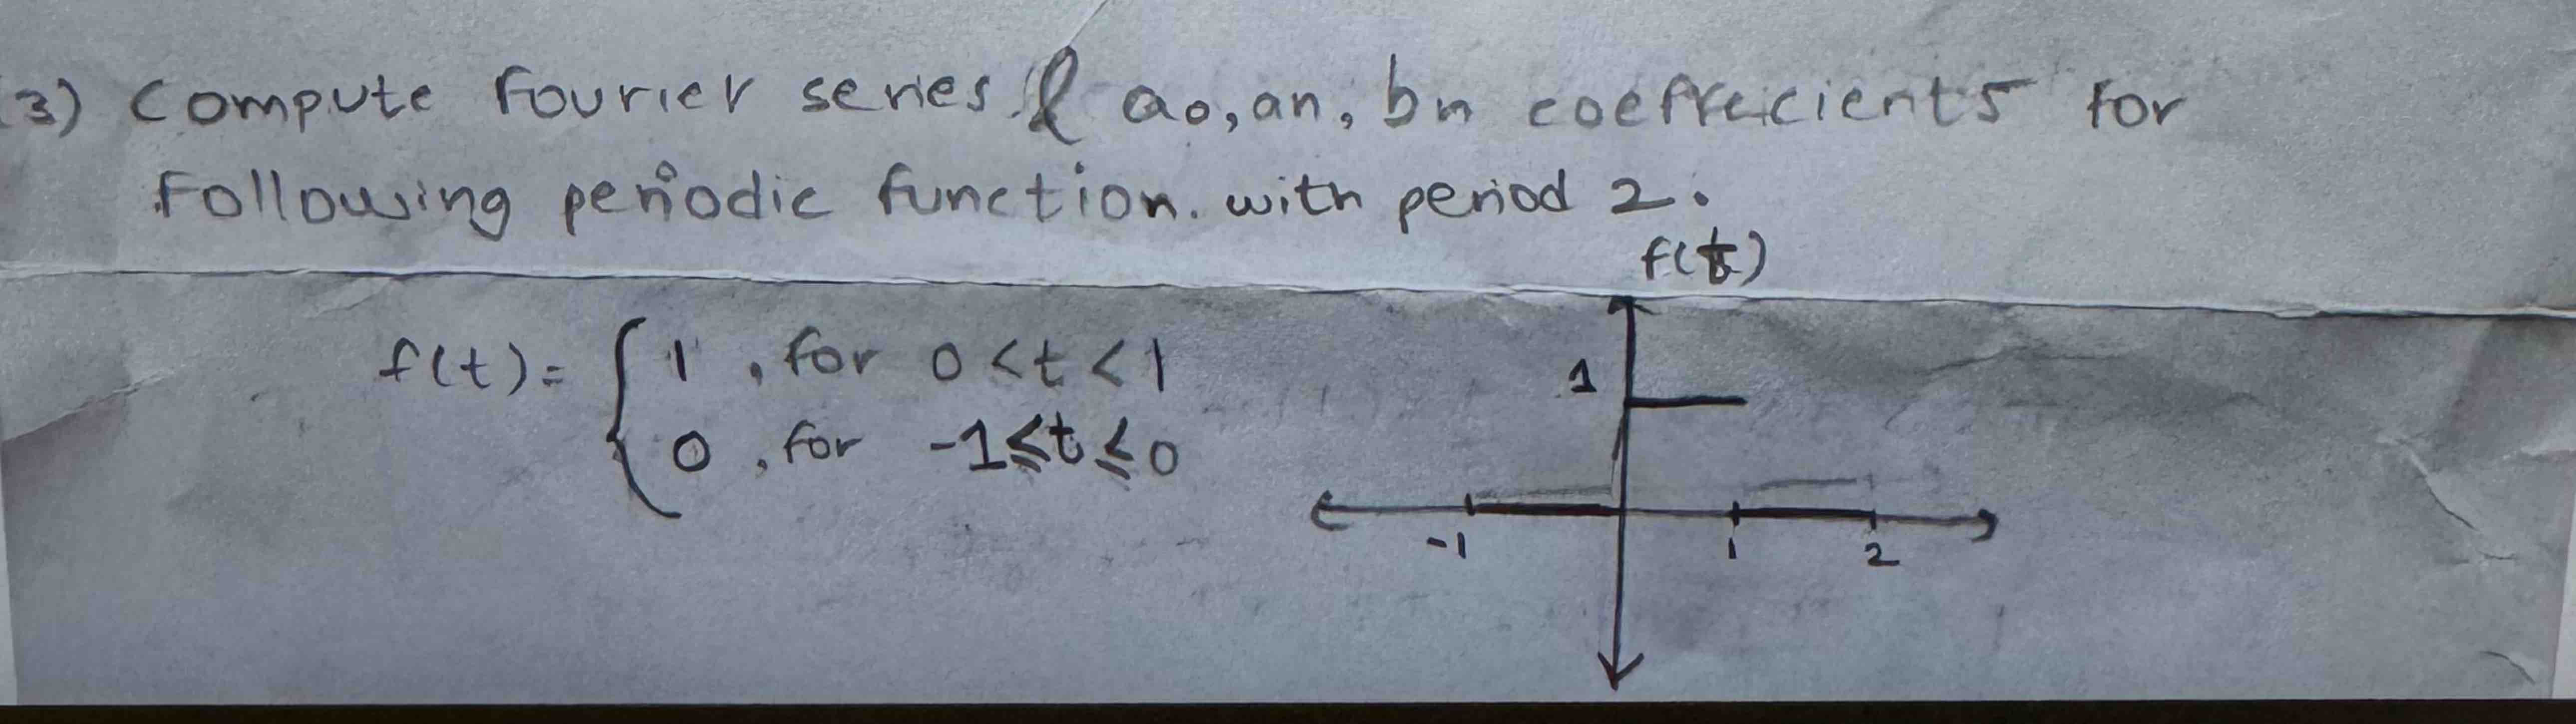 (3) Compute Fourier series & a₀, an, bn coeffecients for
Following periodic function. with period 2.
f(t)
f(t) = { 1 , for 0 < t < 1
0 , for -1 ≤ t ≤ 0
1
-1 1 2